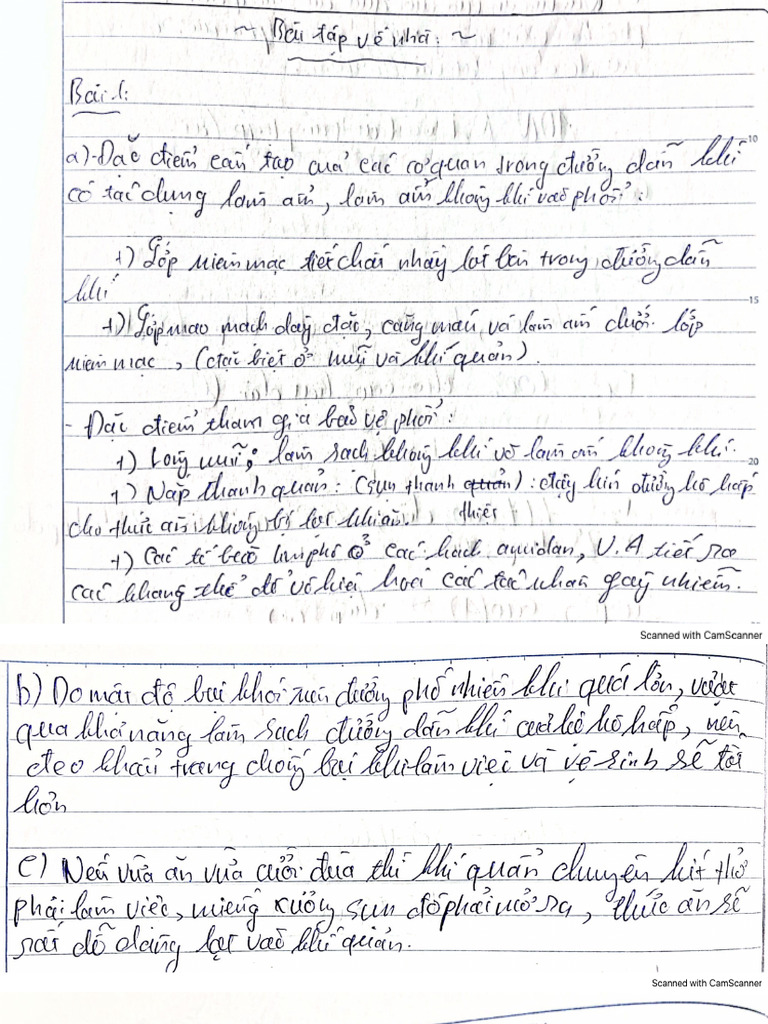 ~ Bài tập về nhà: ~
Bài 1:
10
a) - Đặc điểm cấu tạo của các cơ quan trong đường dẫn khí
có tác dụng làm ẩm, làm ấm không khí vào phổi:
+) Lớp niêm mạc tiết chất nhầy lót bên trong đường dẫn
khí
15
+) Lớp mao mạch dày đặc, căng máu và làm ấm dưới lớp
niêm mạc, (đặc biệt ở mũi và khí quản).
- Đặc điểm tham gia bảo vệ phổi:
+) Lông mũi: làm sạch không khí và làm ẩm không khí.
20
+) Nắp thanh quản: (sụn thanh thiệt): đậy kín đường hô hấp
cho thức ăn không bị lọt khi ăn.
+) Các tế bào limphô ở các hạch amiđan, V.A tiết ra
các kháng thể để vô hiệu hoá các tác nhân gây nhiễm.
Scanned with CamScanner
b) Do mật độ bụi khói trên đường phố nhiều khi quá lớn, vượt
qua khả năng làm sạch đường dẫn khí của hệ hô hấp, nên
đeo khẩu trang chống bụi khi làm việc và vệ sinh sẽ tốt
hơn
c) Nếu vừa ăn vừa cười đùa thì khí quản chuyên hít thở
phải làm việc, miếng xương sụn đó phải mở ra, thức ăn sẽ
rất dễ dàng lọt vào khí quản.
Scanned with CamScanner